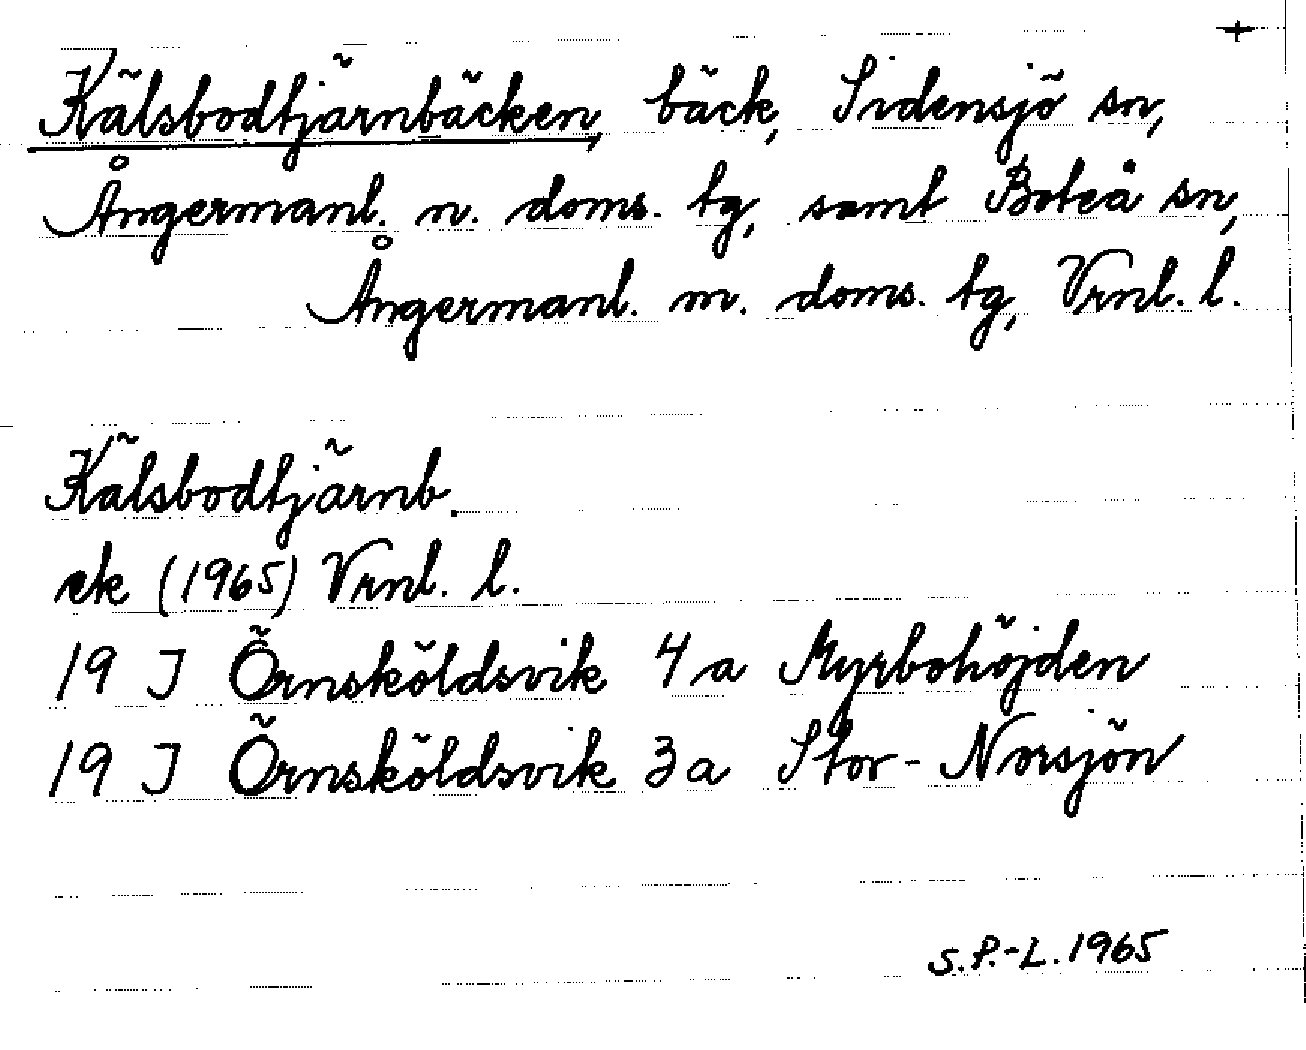 +
Kälsbodtjärnbäcken, bäck, Sidensjö sn,
Ångermanl. n. doms. tg, samt Boteå sn,
Ångermanl. m. doms. tg, Vrnl. l.
Kälsbodtjärnb.
ek (1965) Vrnl. l.
19 J Örnsköldsvik 4 a Myrbohöjden
19 J Örnsköldsvik 3 a Stor-Norsjön
S.P.-L. 1965